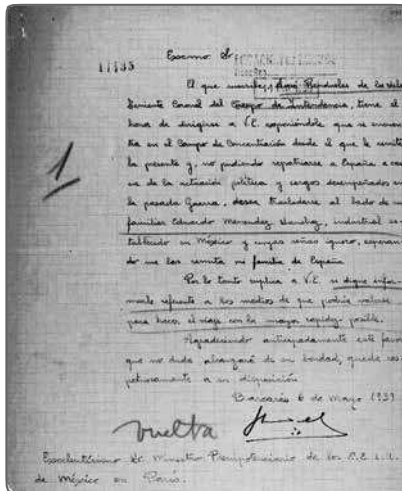 Excmo Sr
17135
El que suscribe, Regueles de la
Teniente Coronel del Cuerpo de Intendencia, tiene el
honor de dirigirse a V.E. exponiéndole que se encuen-
tra en el Campo de Concentración desde el que le remite
la presente y, no pudiendo repatriarse a España a cau-
sa de la actuación política y cargos desempeñados en
la pasada Guerra, desea trasladarse al lado de un
familiar Eduardo Menendez Sanchez, industrial es-
tablecido en México y cuyas señas ignoro, esperan-
do me las remita mi familia de España
1
Por lo tanto suplica a V.E. se digne infor-
marle referente a los medios de que podría valerse
para hacer el viaje con la mayor rapidez posible.
Agradeciendo anticipadamente este favor
que no duda alcanzará de su bondad, queda res-
petuosamente a su disposición
Barcarés 6 de Mayo 1939
vuelta
Excelentísimo Sr Ministro Plenipotenciario de los E.E. U.U.
de México en París.